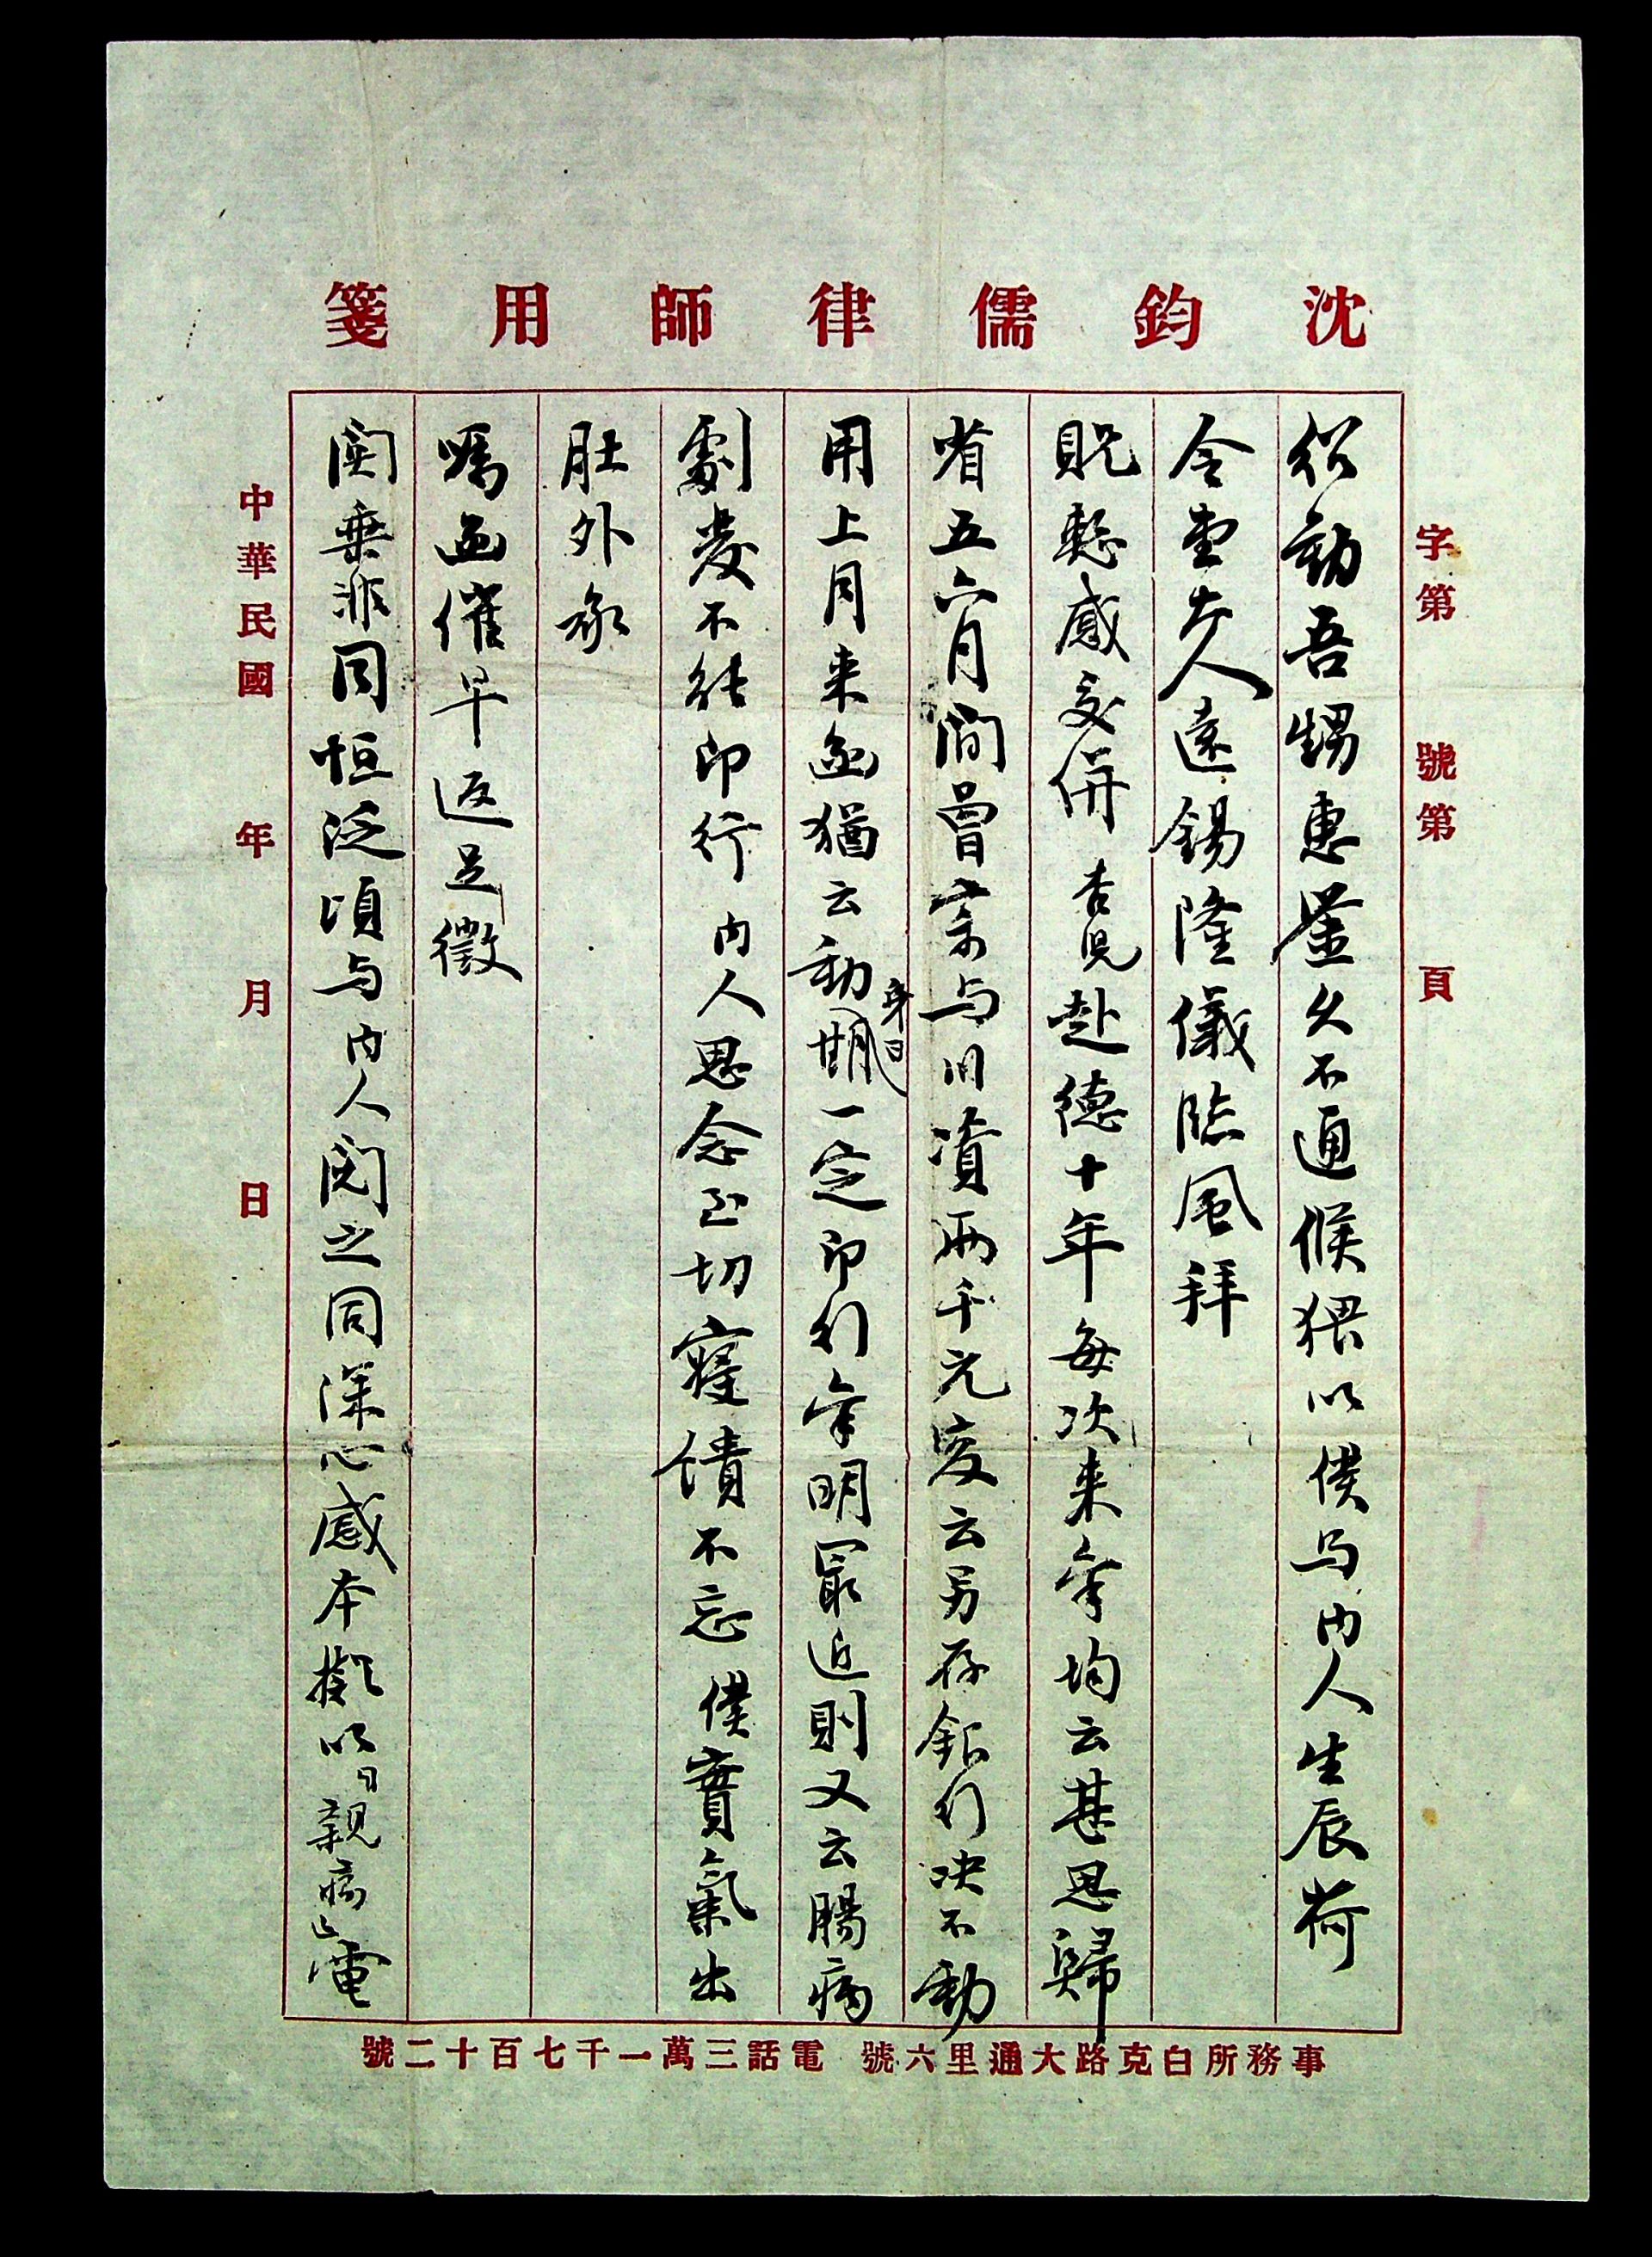 沈鈞儒律師用箋
字第 號第 頁
紹勤吾甥惠鑒久不通候猥以僕与內人生辰荷
令堂太人遠錫隆儀臨風拜
貺慙感交併杏兒赴德十年每次來稟均云甚思歸
省五六月間曾寄与川資兩千元变云另存銀行决不動
用上月來函猶云動身日期一定即行稟明最近則又云腸病
劇發不能即行內人思念至切寢饋不忘僕實氣出
肚外承
囑函催早返足徵
関垂非同恒泛頃与內人閱之同深心感本擬以母親病亡電
中華民國 年 月 日
事務所白克路大通里六號 電話三萬一千七百十二號